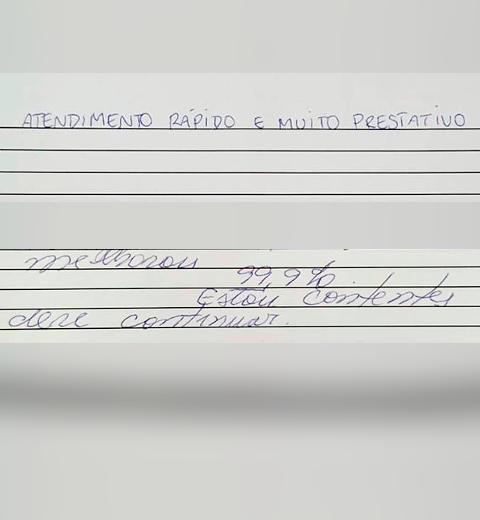 ATENDIMENTO RÁPIDO E MUITO PRESTATIVO
melhorou 99,9%.
Estou contente
deve continuar.